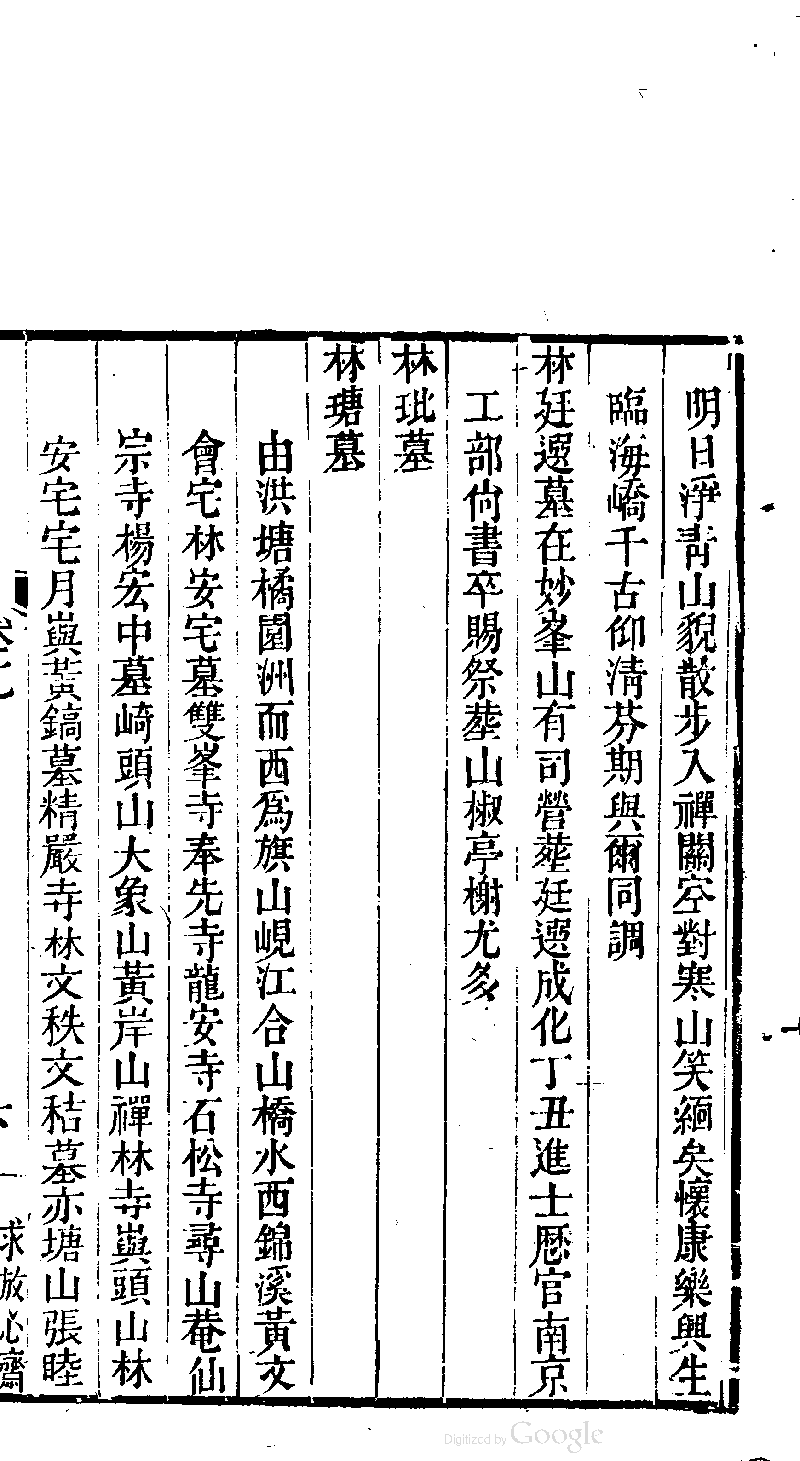 明日淨青山貌散步入禪關空對寒山笑緬矣懷康樂興生
臨海嶠千古仰清芬期與爾同調
林廷選墓在妙峯山有司營葬廷選成化丁丑進士歷官南京
工部尙書卒賜祭葬山椒亭榭尤多
林玭墓
林瑭墓
由洪塘橘園洲而西爲旗山峴江合山橋水西錦溪黃文
會宅林安宅墓雙峯寺奉先寺龍安寺石松寺尋山菴仙
宗寺楊宏中墓崎頭山大象山黃岸山禪林寺嶼頭山林
安宅宅月嶼黃鎬墓精嚴寺林文秩文秸墓亦塘山張睦
求放心齋
Digitized by Google